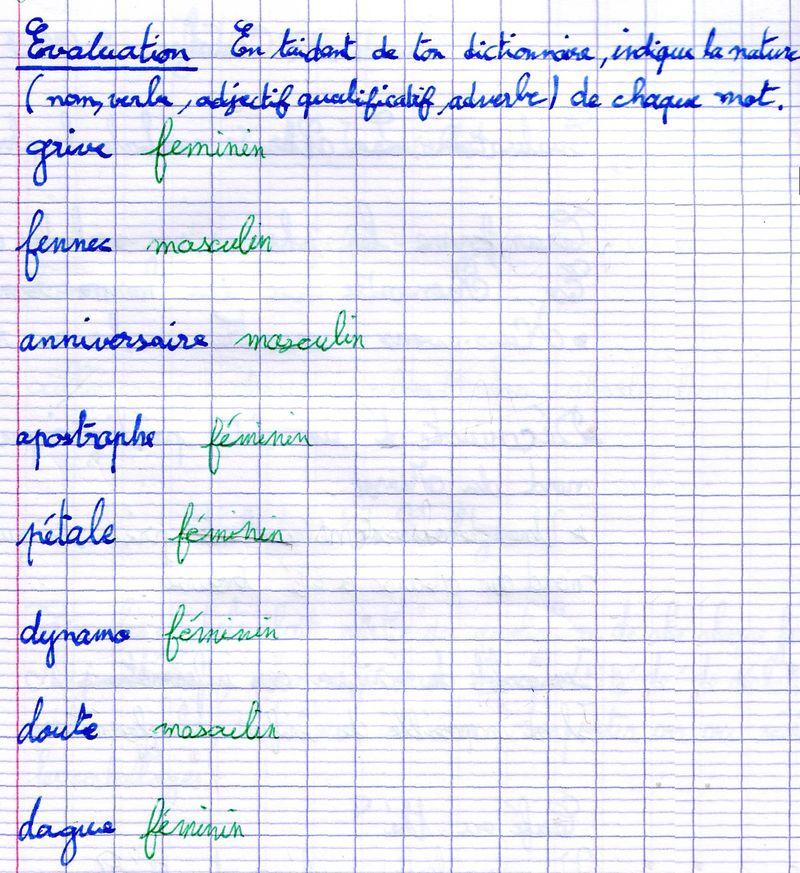 Evaluation En t'aidant de ton dictionnaire, indique la nature
(nom, verbe, adjectif qualificatif, adverbe) de chaque mot.
grive feminin
fennec masculin
anniversaire masculin
apostrophe féminin
pétale féminin
dynamo féminin
doute masculin
dague féminin